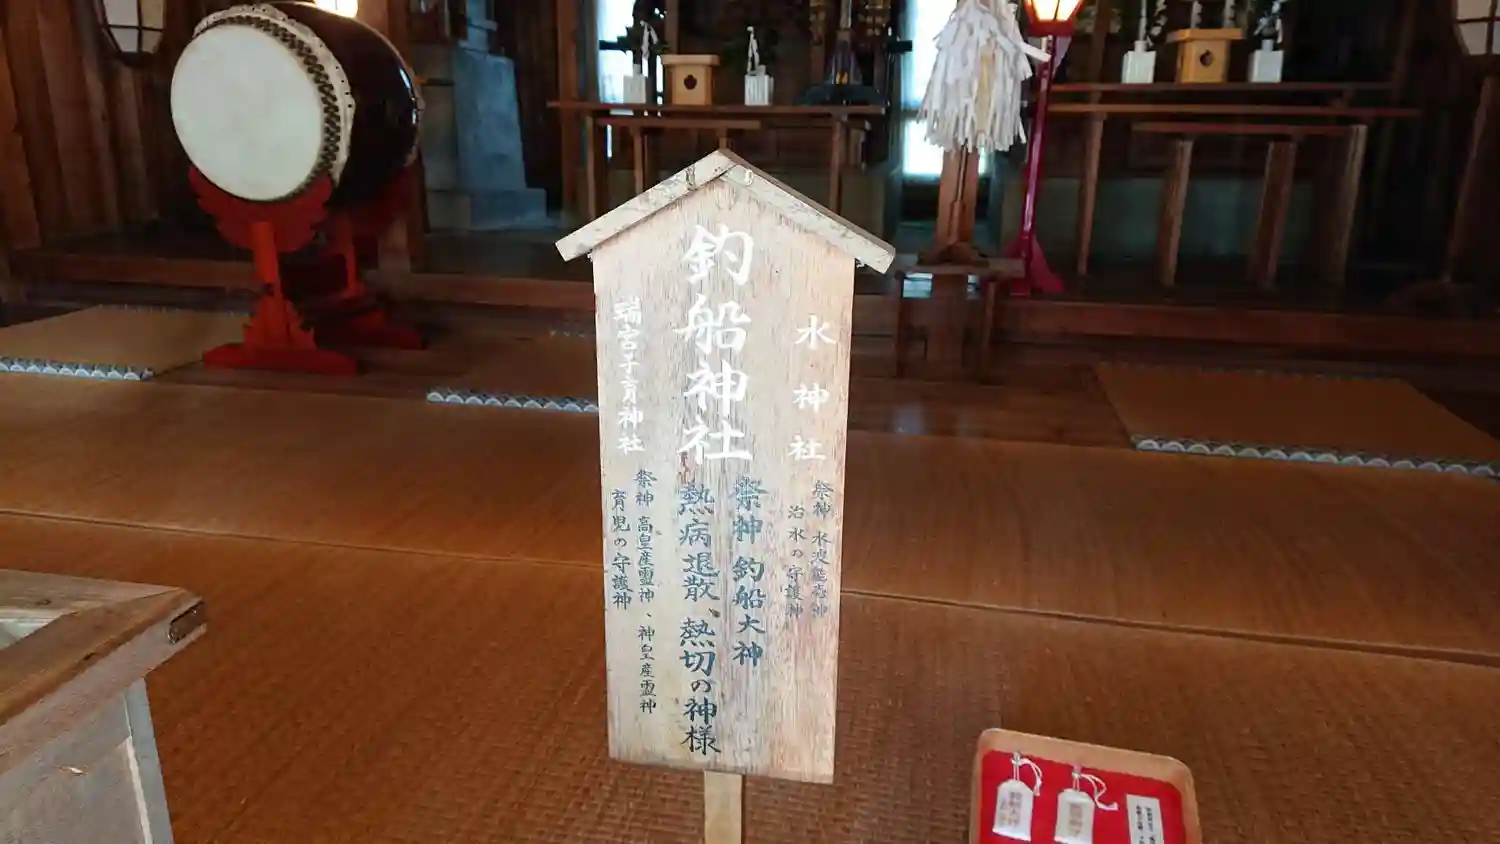 水神社
祭神 水波能売神
治水の守護神
釣船神社
祭神 釣船大神
熱病退散、熱切の神様
端宮子育神社
祭神 高皇産霊神、神皇産霊神
育児の守護神